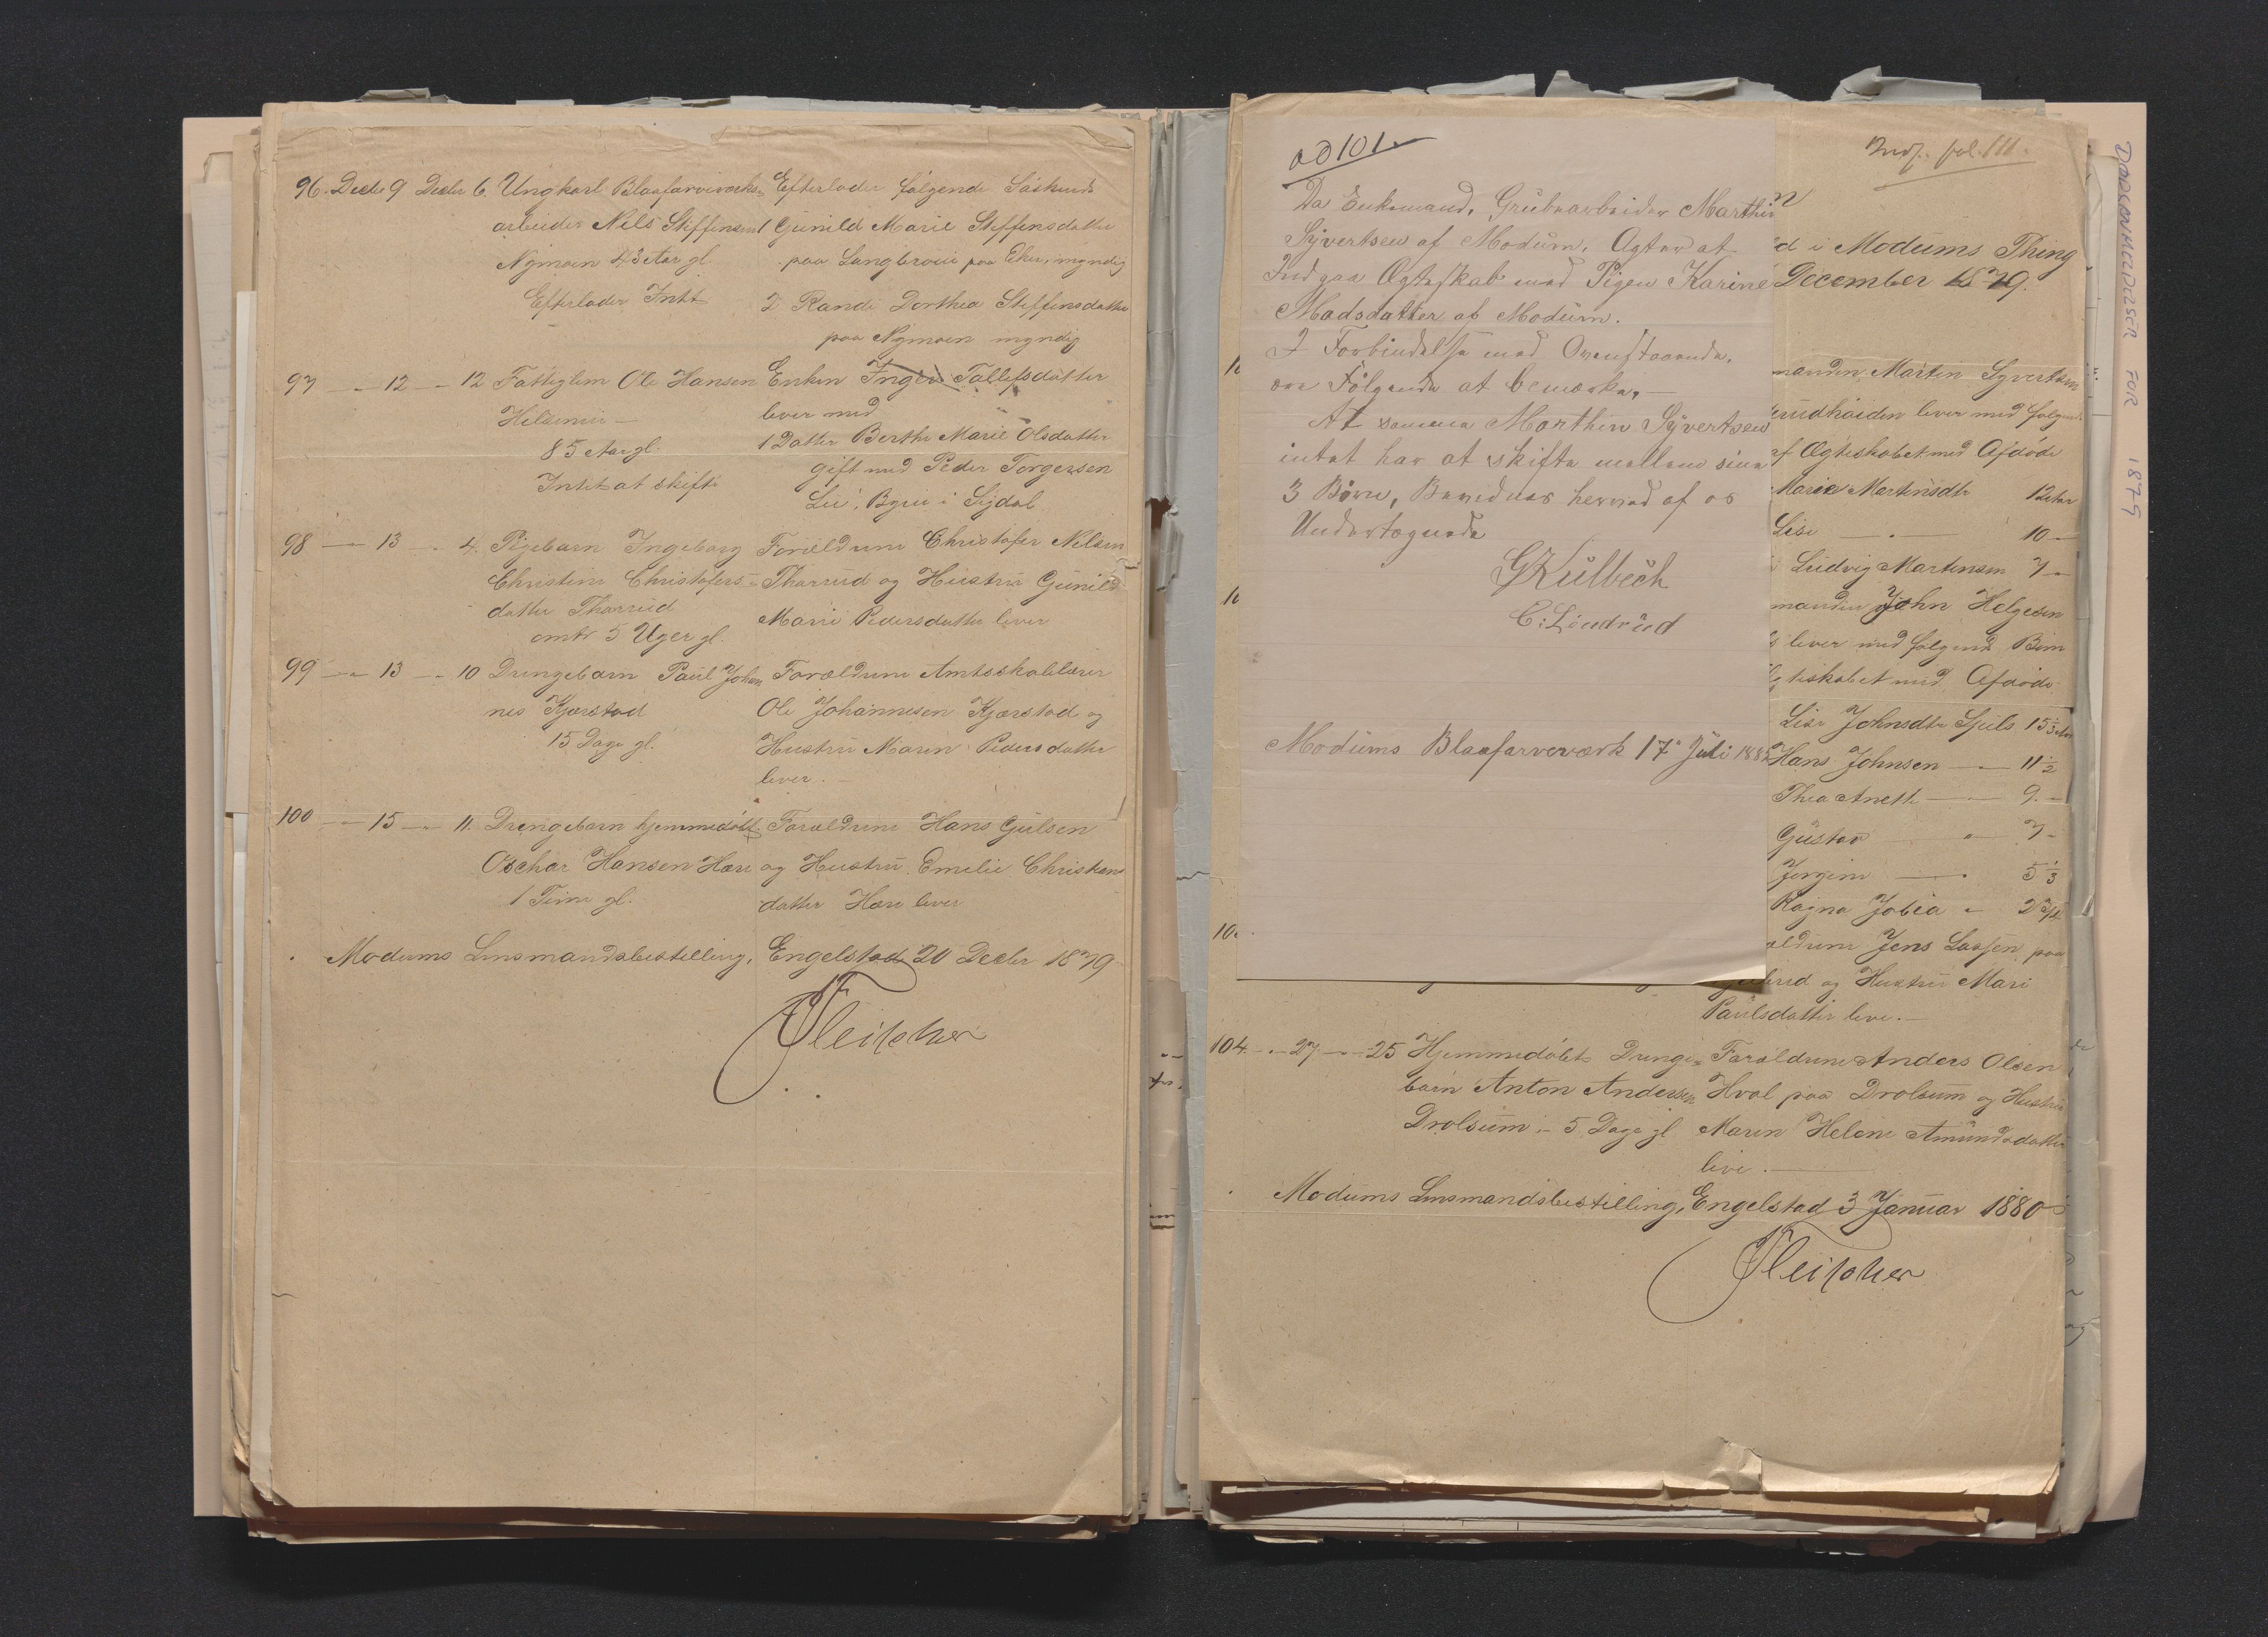 96. Decbr 9 Decbr 6. Ungkarl Blaafarveværks- Efterlader følgende Søskende
arbeider Nils Steffensen 1 Gunild Marie Steffensdatter
Nymoen 43 Aar gl. paa Langbroen paa Eker, myndig
Efterlader Intet 2 Randi Dorthea Steffensdatter
paa Nymoen myndig
97 - " 12 - " 12 Fattiglem Ole Hansen Enken Inger Tollefsdatter
lever med
85 Aar gl. 1 Datter Berthe Marie Olsdatter
Intet at skifte gift med Peder Torgersen
Lie, Bgrn i Sigdal
98 - " 13 - " 4. Pigebarn Ingeborg Forældrene Christofer Nilsen
Christine Christofers- Thorrud og Hustru Gunild
datter Thorrud Marie Pedersdatter lever
omtr 5 Uger gl.
99 - " 13 - " 10 Drengebarn Paul Johan Forældrene Amtsskolelærer
nes Kjørstad Ole Johannesen Kjørstad og
15 Dage gl. Hustru Maren Pedersdatter
lever. -
100 - " 15 - " 11. Drengebarn hjemmedøbt Forældrene Hans Gulsen
Oschar Hansen Hære og Hustru Emelie Christians
1 Time gl. datter Hære lever
Modums Lensmandsbestilling, Engelstad 20 Decbr 1879
Fleischer
ad 101.
Da Enkemand, Grubearbeider Marthin
Syvertsen af Modum, Agter at
Indgaa Ægteskab med Pigen Karine
Madsdatter af Modum.
I Forbindelse med Ovenstaaende,
er Følgende at bemærke, -
At samme Marthin Syvertsen
intet har at skifte mellem sine
3 Børn, Bevidnes herved af os
Undertegnede
G Kulbeck
C: Lindrud
Modums Blaafarveværk 17de Juli 188
Indf. fol. 111.
d i Modums Thing
December 1879.
manden Martin Syvertsen
rudhøiden lever med følgende
af Ægteskabet med Afdøde
Marie Martinsdtr 12 Aar
Lise - " - 10 -
Ludvig Martinsen 7 -
manden John Helgesen
lever med følgende Børn
gteskabet med Afdøde
Lise Johnsdtr Sjuls 15 1/3 Aar
Hans Johnsen - 11 1/2
Thea Anette - 9. -
Gustav " 7 -
Jørgine - 5 1/3
Ragna Jobea " 2 3/4
ældrene Jens Larsen paa
og Hustru Mari
Paulsdatter leve. -
104. - " 27 - " 25 Hjemmedøbt Drenge- Forældrene Anders Olsen
barn Anton Andersen Hval paa Drolsum og Hustru
Drolsum - 5 Dage gl Maren Helene Amundsdatter
leve. -
Modums Lensmandsbestilling, Engelstad 3 Januar 1880
Fleischer
DØDSANMELDELSER FOR 1879